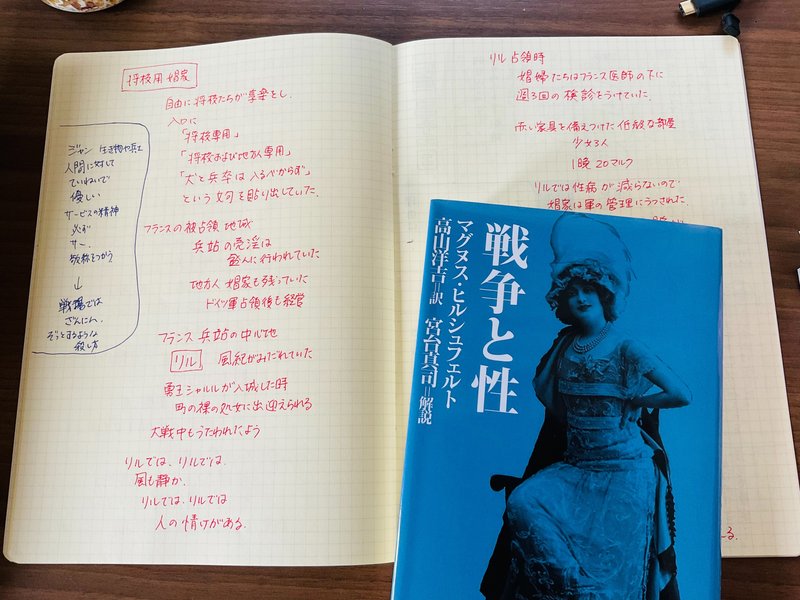 将校用 娼家
自由に将校たちが享楽をし.
入口に
「将校専用」
「将校および地方人専用」
「犬と兵卒は入るべからず」
という文句を貼り出していた.
フランスの被占領 地域
兵站の売淫は
盛んに行われていた
地方人 娼家も残っていた
ドイツ軍占領後も経営
フランス 兵站の中心地
リル 風紀がみだれていた
勇王シャルルが入城した時
町の裸の処女に出迎えられる
大戦中もうたわれたよう
リルでは、リルでは.
風も静か.
リルでは、リルでは
人の情けがある.
ジャン
人間に対して
ていねいで
優しい
サービスの精神
必ず
サー.
敬称をつかう
↓
戦場では
ざんにん.
ぞっとするような
殺し方
リル占領時
娼婦たちはフランス医師の下に
週3回の検診をうけていた.
赤い家具を備えつけた低級な部屋
少女3人
1晩20マルク
リルでは性病が減らないので
娼家は軍の管理にうつされた.
戦争と性
マグヌス・ヒルシュフェルト
高山洋吉=訳 宮台真司=解説
る.